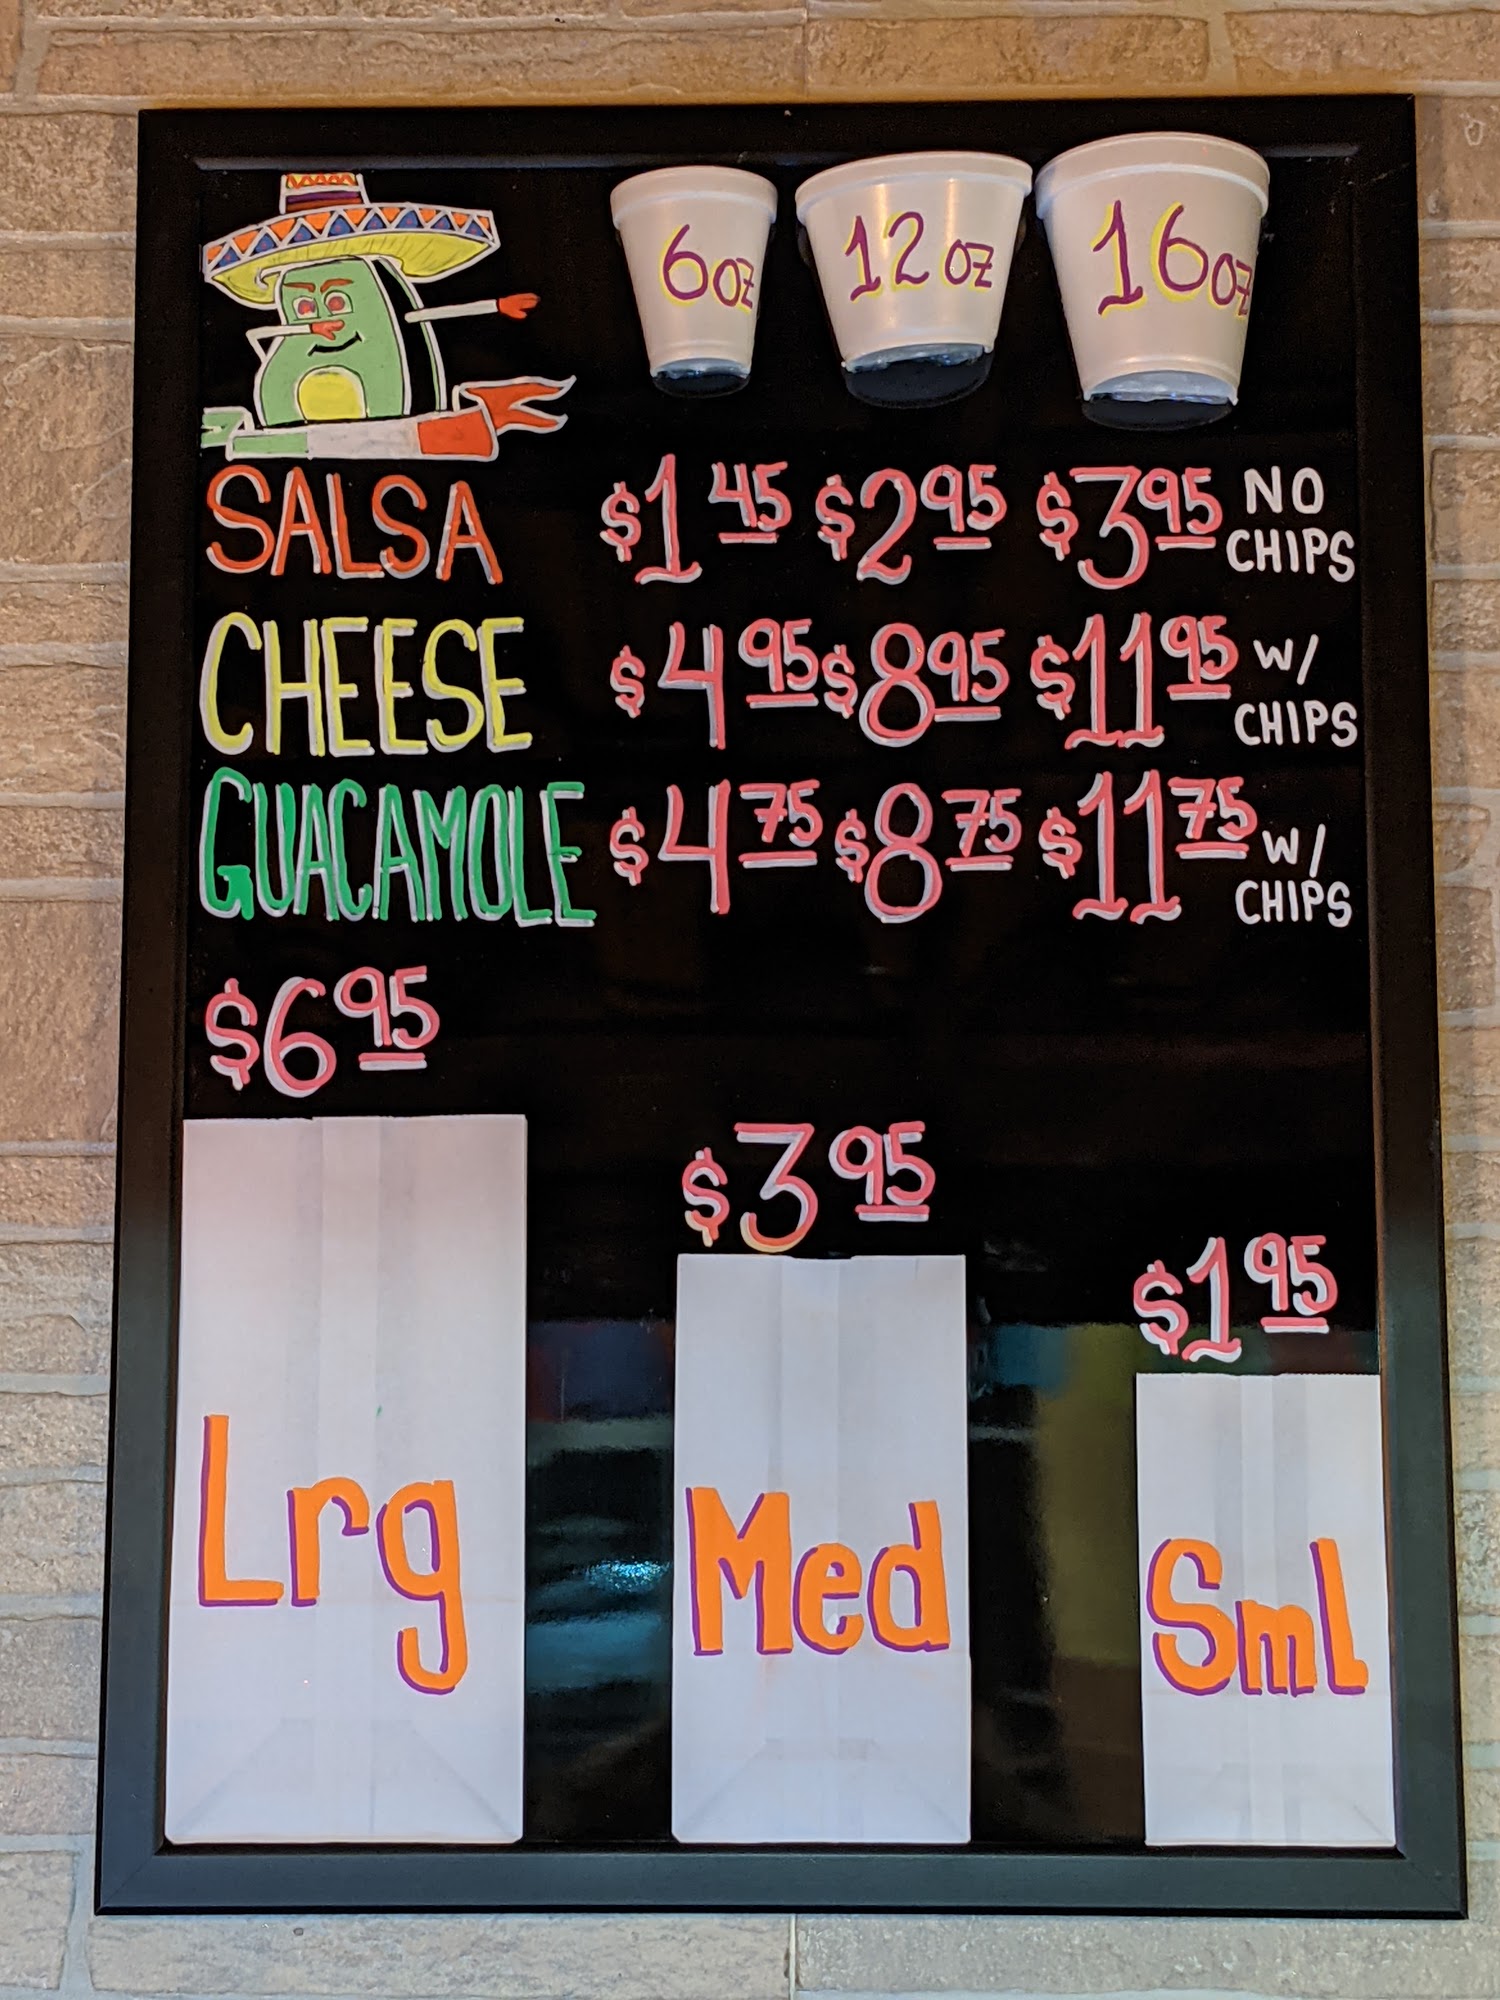 6oz 12oz 16oz
SALSA $1.45 $2.95 $3.95 NO CHIPS
CHEESE $4.95 $8.95 $11.95 W/ CHIPS
GUACAMOLE $4.75 $8.75 $11.75 W/ CHIPS
$6.95
$3.95
$1.95
Lrg Med Sml